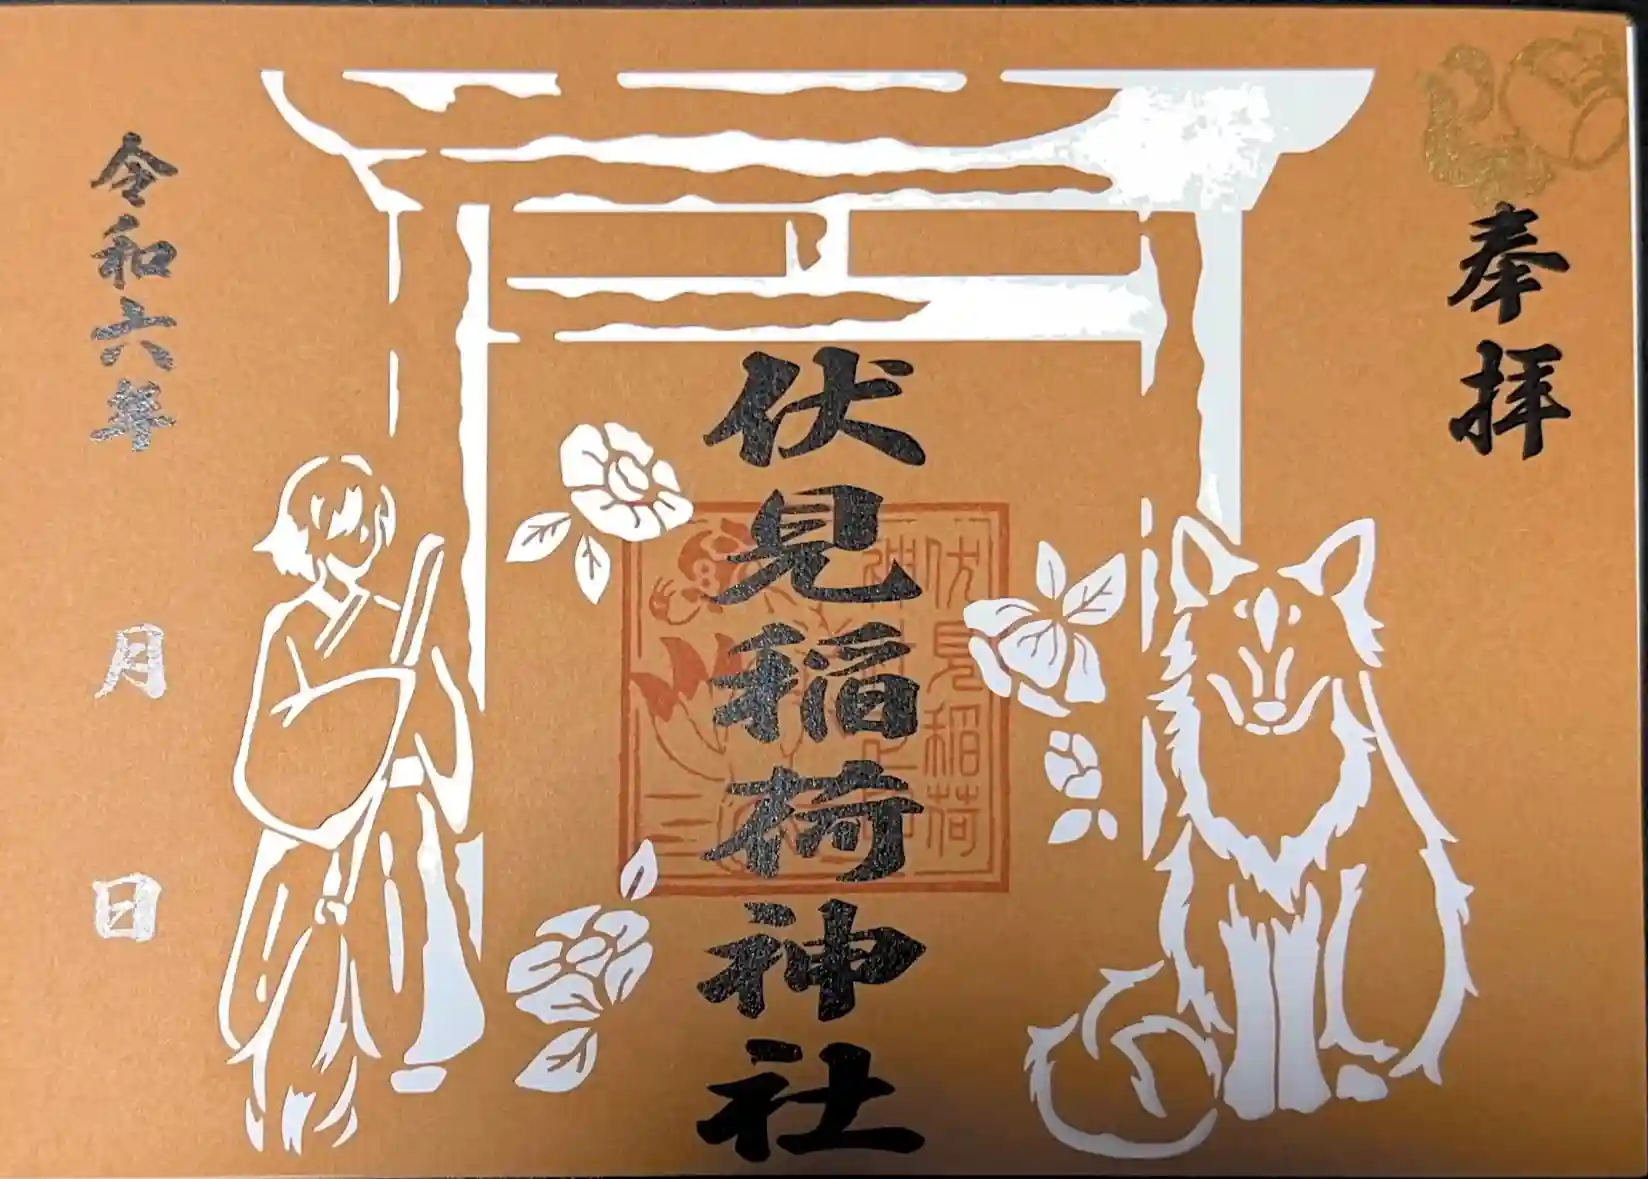 奉拝
伏見稲荷神社
令和六年
月
日
伏見稲荷